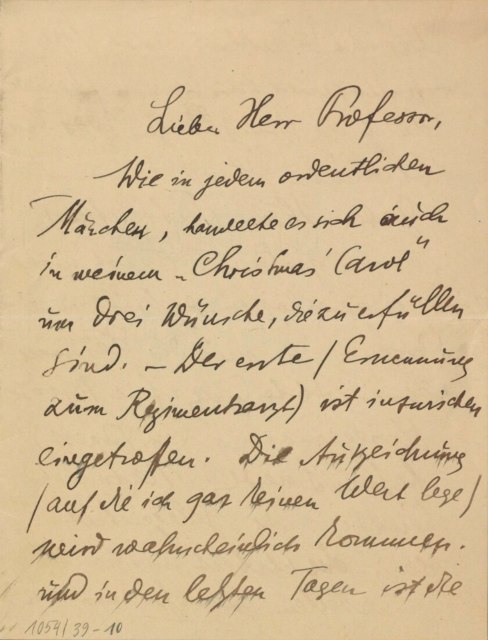 Lieber Herr Professor,
Wie in jedem ordentlichen
Märchen, handelte es sich auch
in meinem „Christmas Carol"
um drei Wünsche, die zu erfüllen
sind. – Der erste (Ernennung
zum Regimentsarzt) ist inzwischen
eingetroffen. Die Auszeichnung
(auf die ich gar keinen Wert lege)
wird wahrscheinlich kommen.
und in den letzten Tagen ist die
1054/39-10